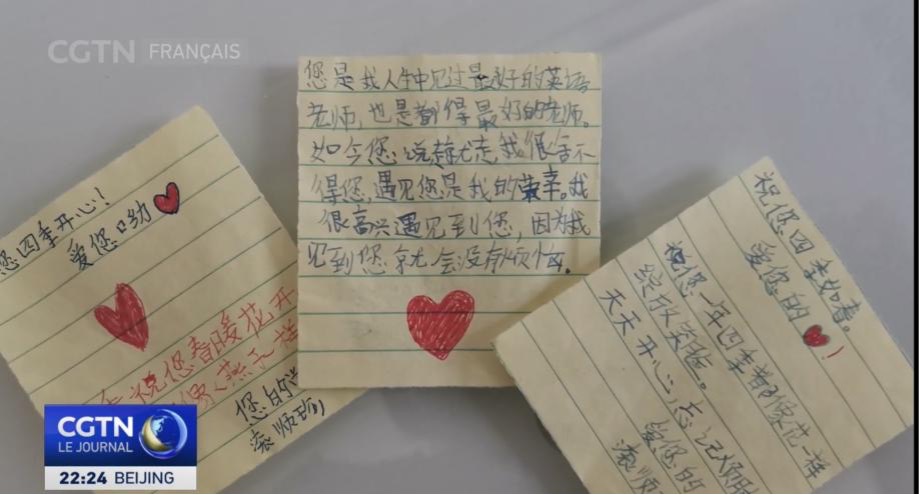 CGTN FRANÇAIS
您是我人生中见过最好的英语
老师,也是都得最好的老师。
如今您说 我很舍不
得您,遇见您是我的荣幸。我
很高兴遇见到您,因为我
见到您就会没有烦恼。
您四季开心!
爱您
祝您春暖花开
像燕子一样
您的
祝您四季如春。
爱您的
!
祝您一年四季都像花一样
绽放
天天开心,忘记烦恼
爱您的
CGTN
LE JOURNAL
22:24 BEIJING